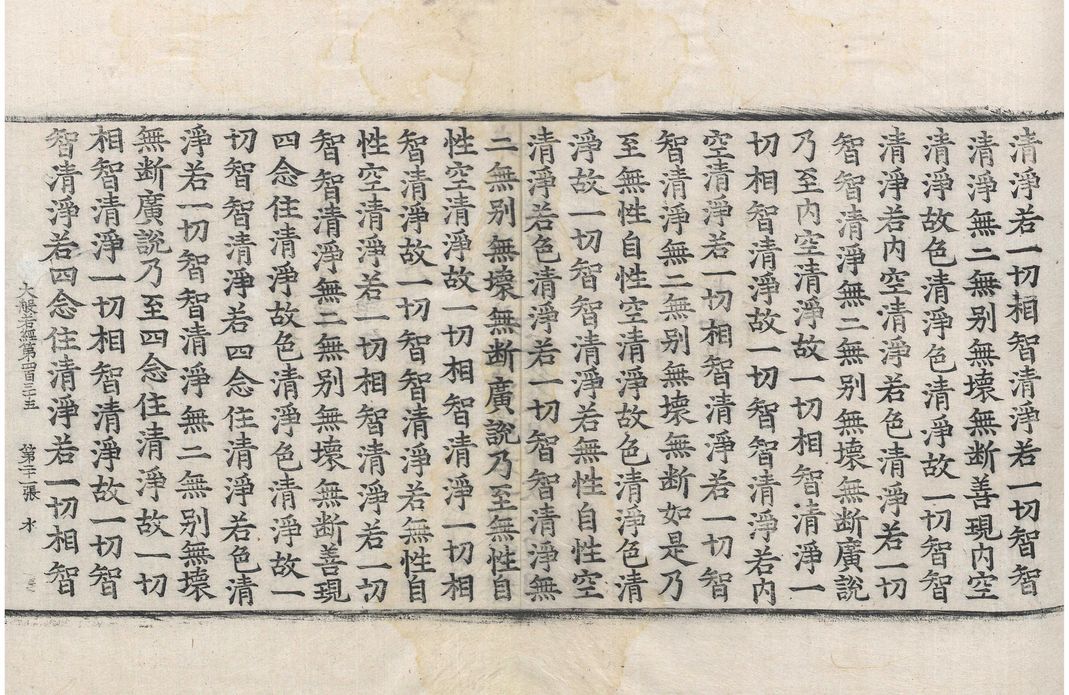 清淨若一切相智清淨若一切智智
清淨無二無別無壞無断善現內空
清淨故色清淨色清淨故一切智智
清淨若內空清淨若色清淨若一切
智智清淨無二無別無壞無断廣說
乃至內空清淨故一切相智清淨一
切相智清淨故一切智智清淨若內
空清淨若一切相智清淨若一切智
智清淨無二無別無壞無断如是乃
至無性自性空清淨故色清淨色清
淨故一切智智清淨若無性自性空
清淨若色清淨若一切智智清淨無
二無別無壞無断廣說乃至無性自
性空清淨故一切相智清淨一切相
智清淨故一切智智清淨若無性自
性空清淨若一切相智清淨若一切
智智清淨無二無別無壞無断善現
四念住清淨故色清淨色清淨故一
切智智清淨若四念住清淨若色清
淨若一切智智清淨無二無別無壞
無断廣說乃至四念住清淨故一切
相智清淨一切相智清淨故一切智
智清淨若四念住清淨若一切相智
大般若經第四百三十五 第二十一張 水